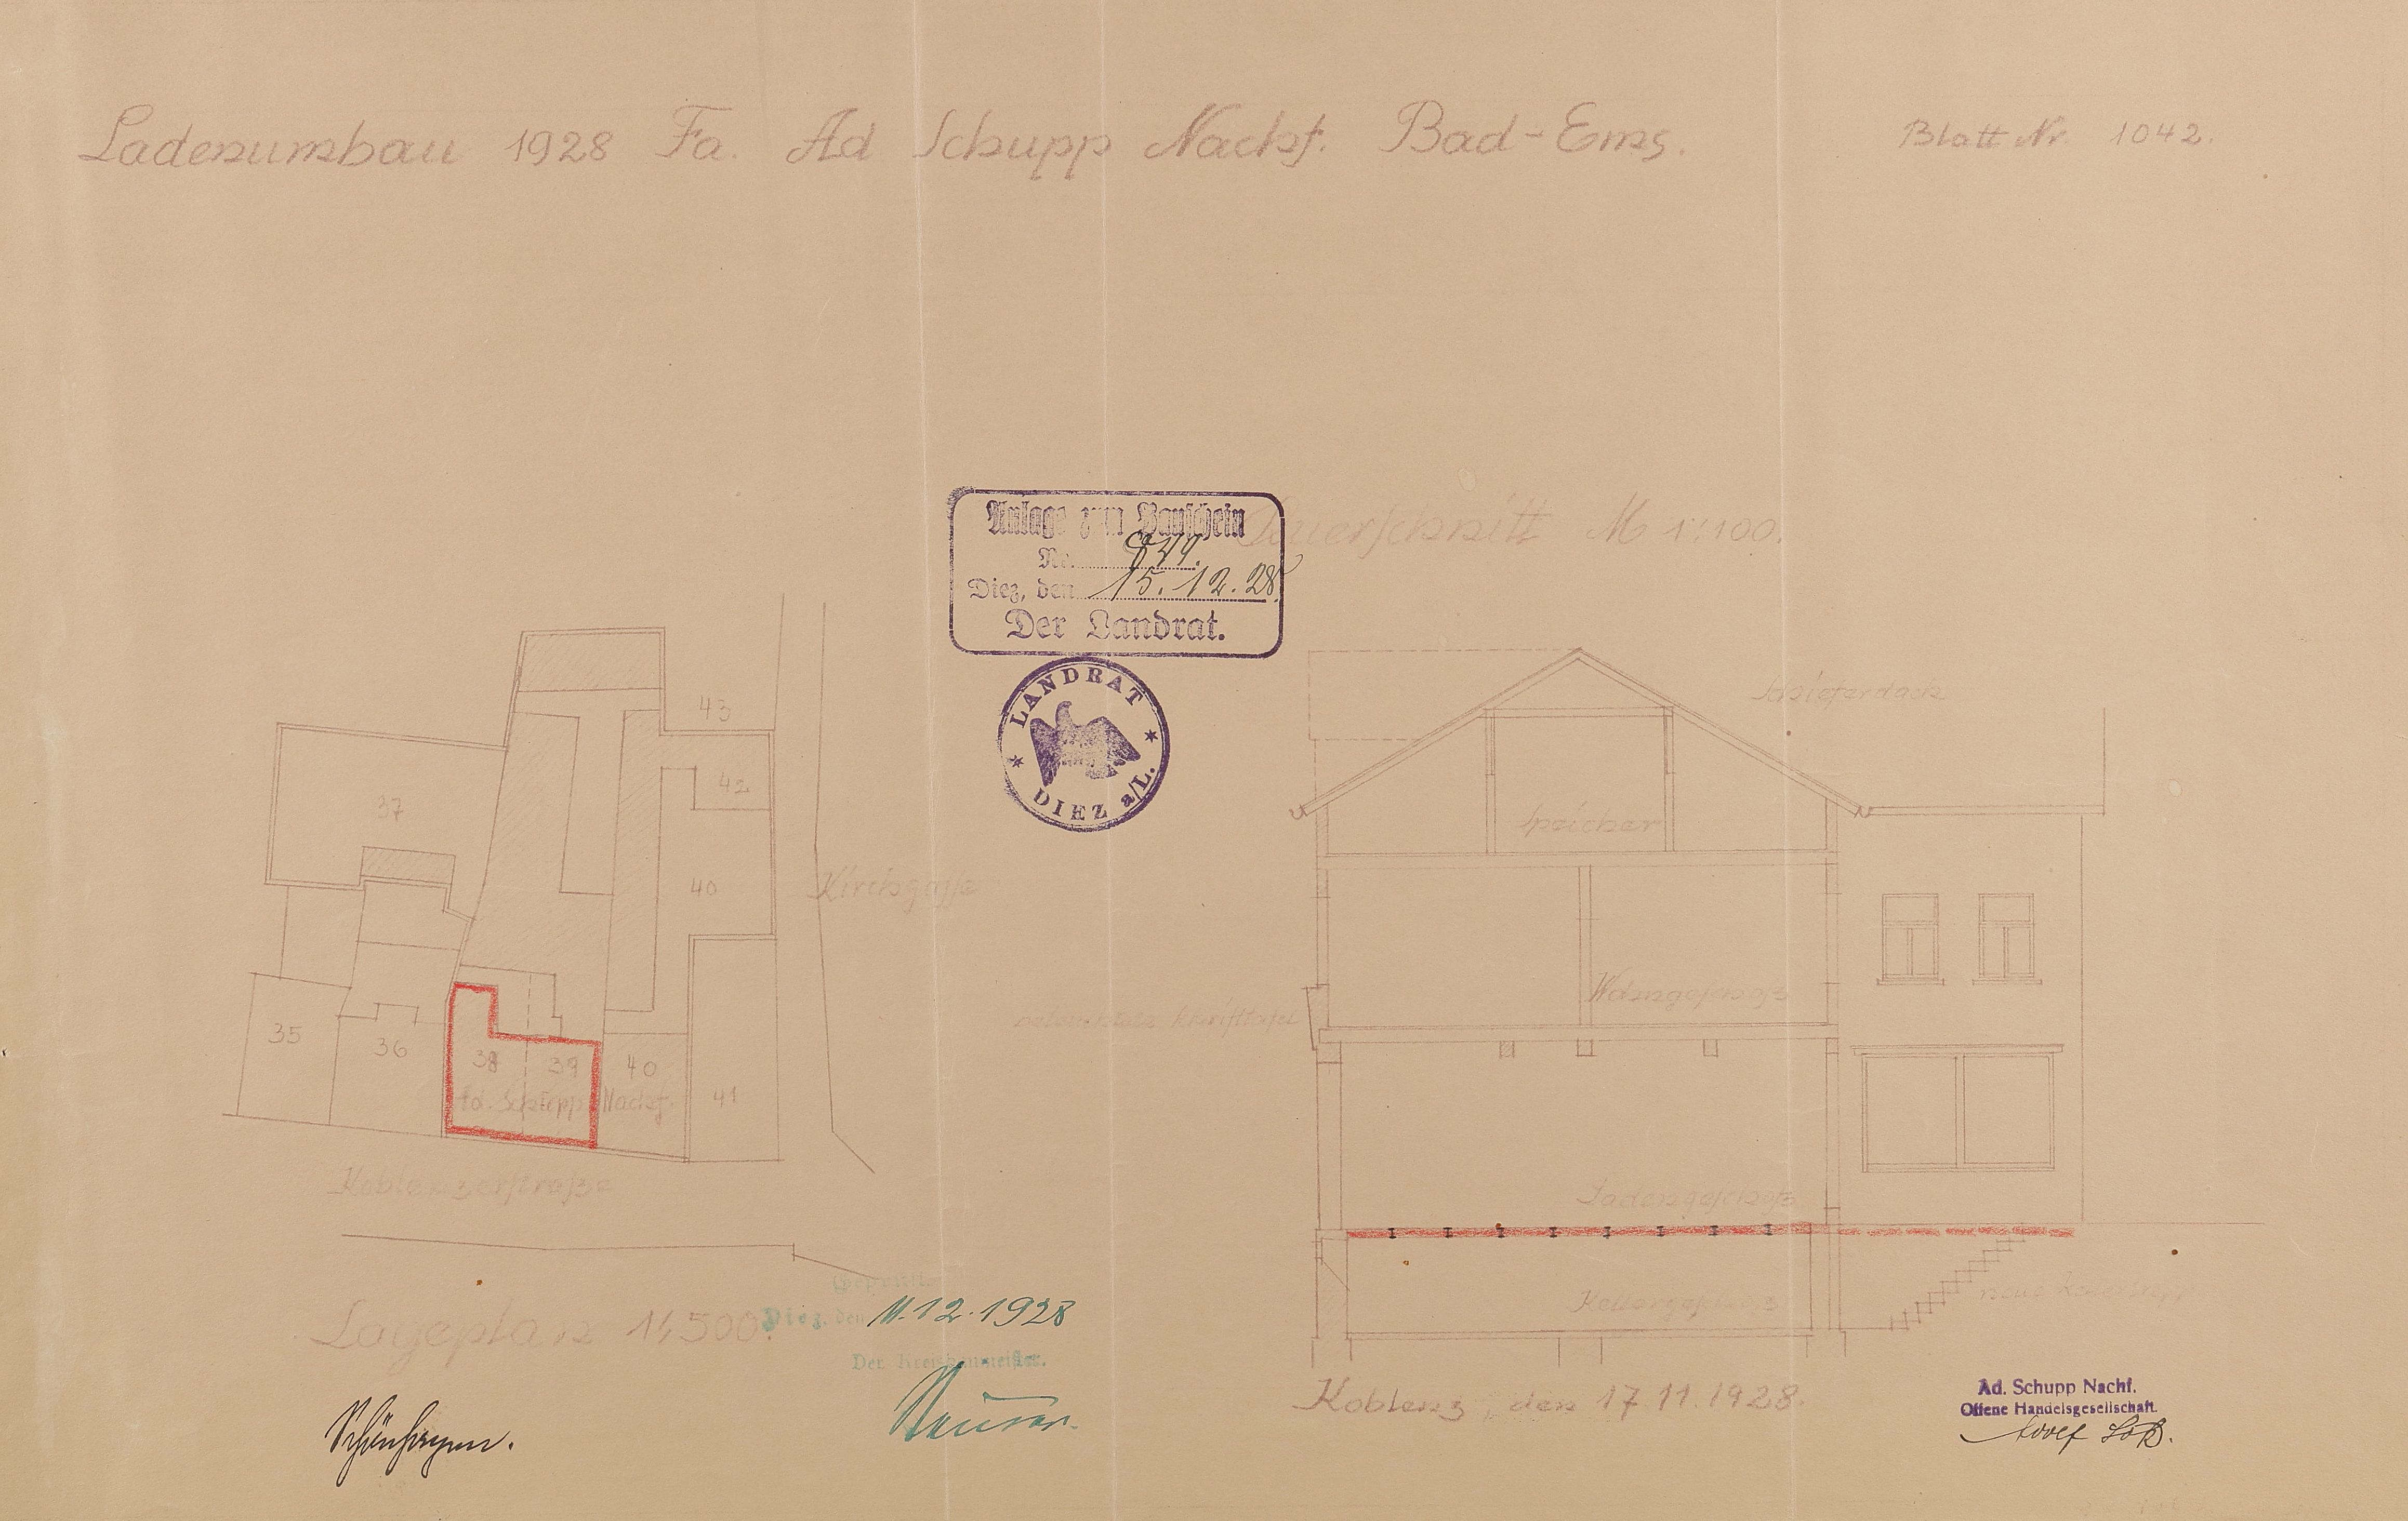 Ladenumbau 1928 Fa. Ad Schupp Nachf. Bad-Ems.
Blatt Nr. 1042.
Anlage zum Bauschein
Nr. 849.
Diez, den 15.12.28
Der Landrat.
LANDRAT
DIEZ a/L.
Querschnitt M 1:100.
43
42
37
40
Kirchgasse
35
36
38
39
40
41
Ad. Schupp Nachf.
Koblenzerstraße
Lageplan 1:500.
Geprüft.
Diez, den 11.12.1928
Der Kreisbaumeister.
Schieferdach
Speicher
Wohngeschoß
Ladengeschoß
Kellergeschoß
neue
Koblenz, den 17.11.1928.
Ad. Schupp Nachf.
Offene Handelsgesellschaft.